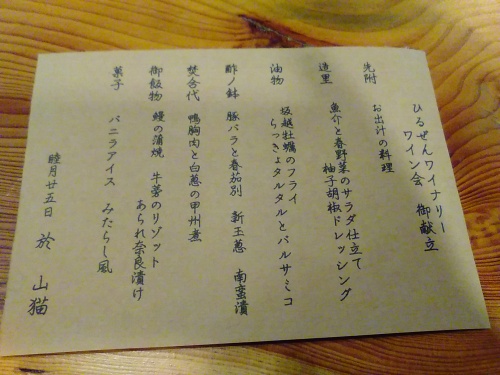 ひるぜんワイナリー
ワイン会 御献立
先附 お出汁の料理
造里 魚介と春野菜のサラダ仕立て
柚子胡椒ドレッシング
油物 坂越牡蠣のフライ
らっきょタルタルとバルサミコ
酢ノ鉢 豚バラと蕃茄別 新玉葱 南蛮漬
焚合代 鴨胸肉と白葱の甲州煮
御飯物 鰻の蒲焼 牛蒡のリゾット
あられ奈良漬け
菓子 バニラアイス みたらし風
睦月廿五日 於 山猫